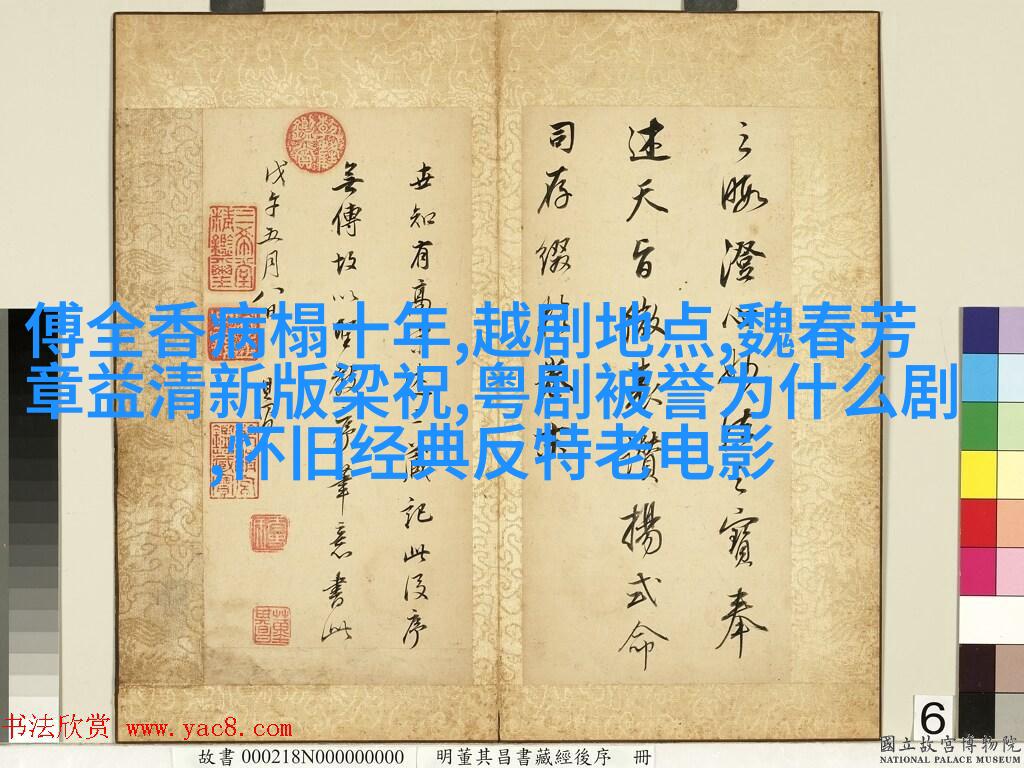 傅全香病榻十年,越剧地点,魏春芳
章益清新版梁祝,粤剧被誉为什么剧
,怀旧经典反特老电影
之暇澄心妙法之寶奉
述天旨微表讚揚式命
司存綴於卷末
世知有高藏記此後序
無傳故以序筆意書此
戊午五月八日
书法欣赏 www.yac8.com
故書 000218N000000000 明董其昌書藏經後序 冊
6
國立故宮博物院
NATIONAL PALACE MUSEUM